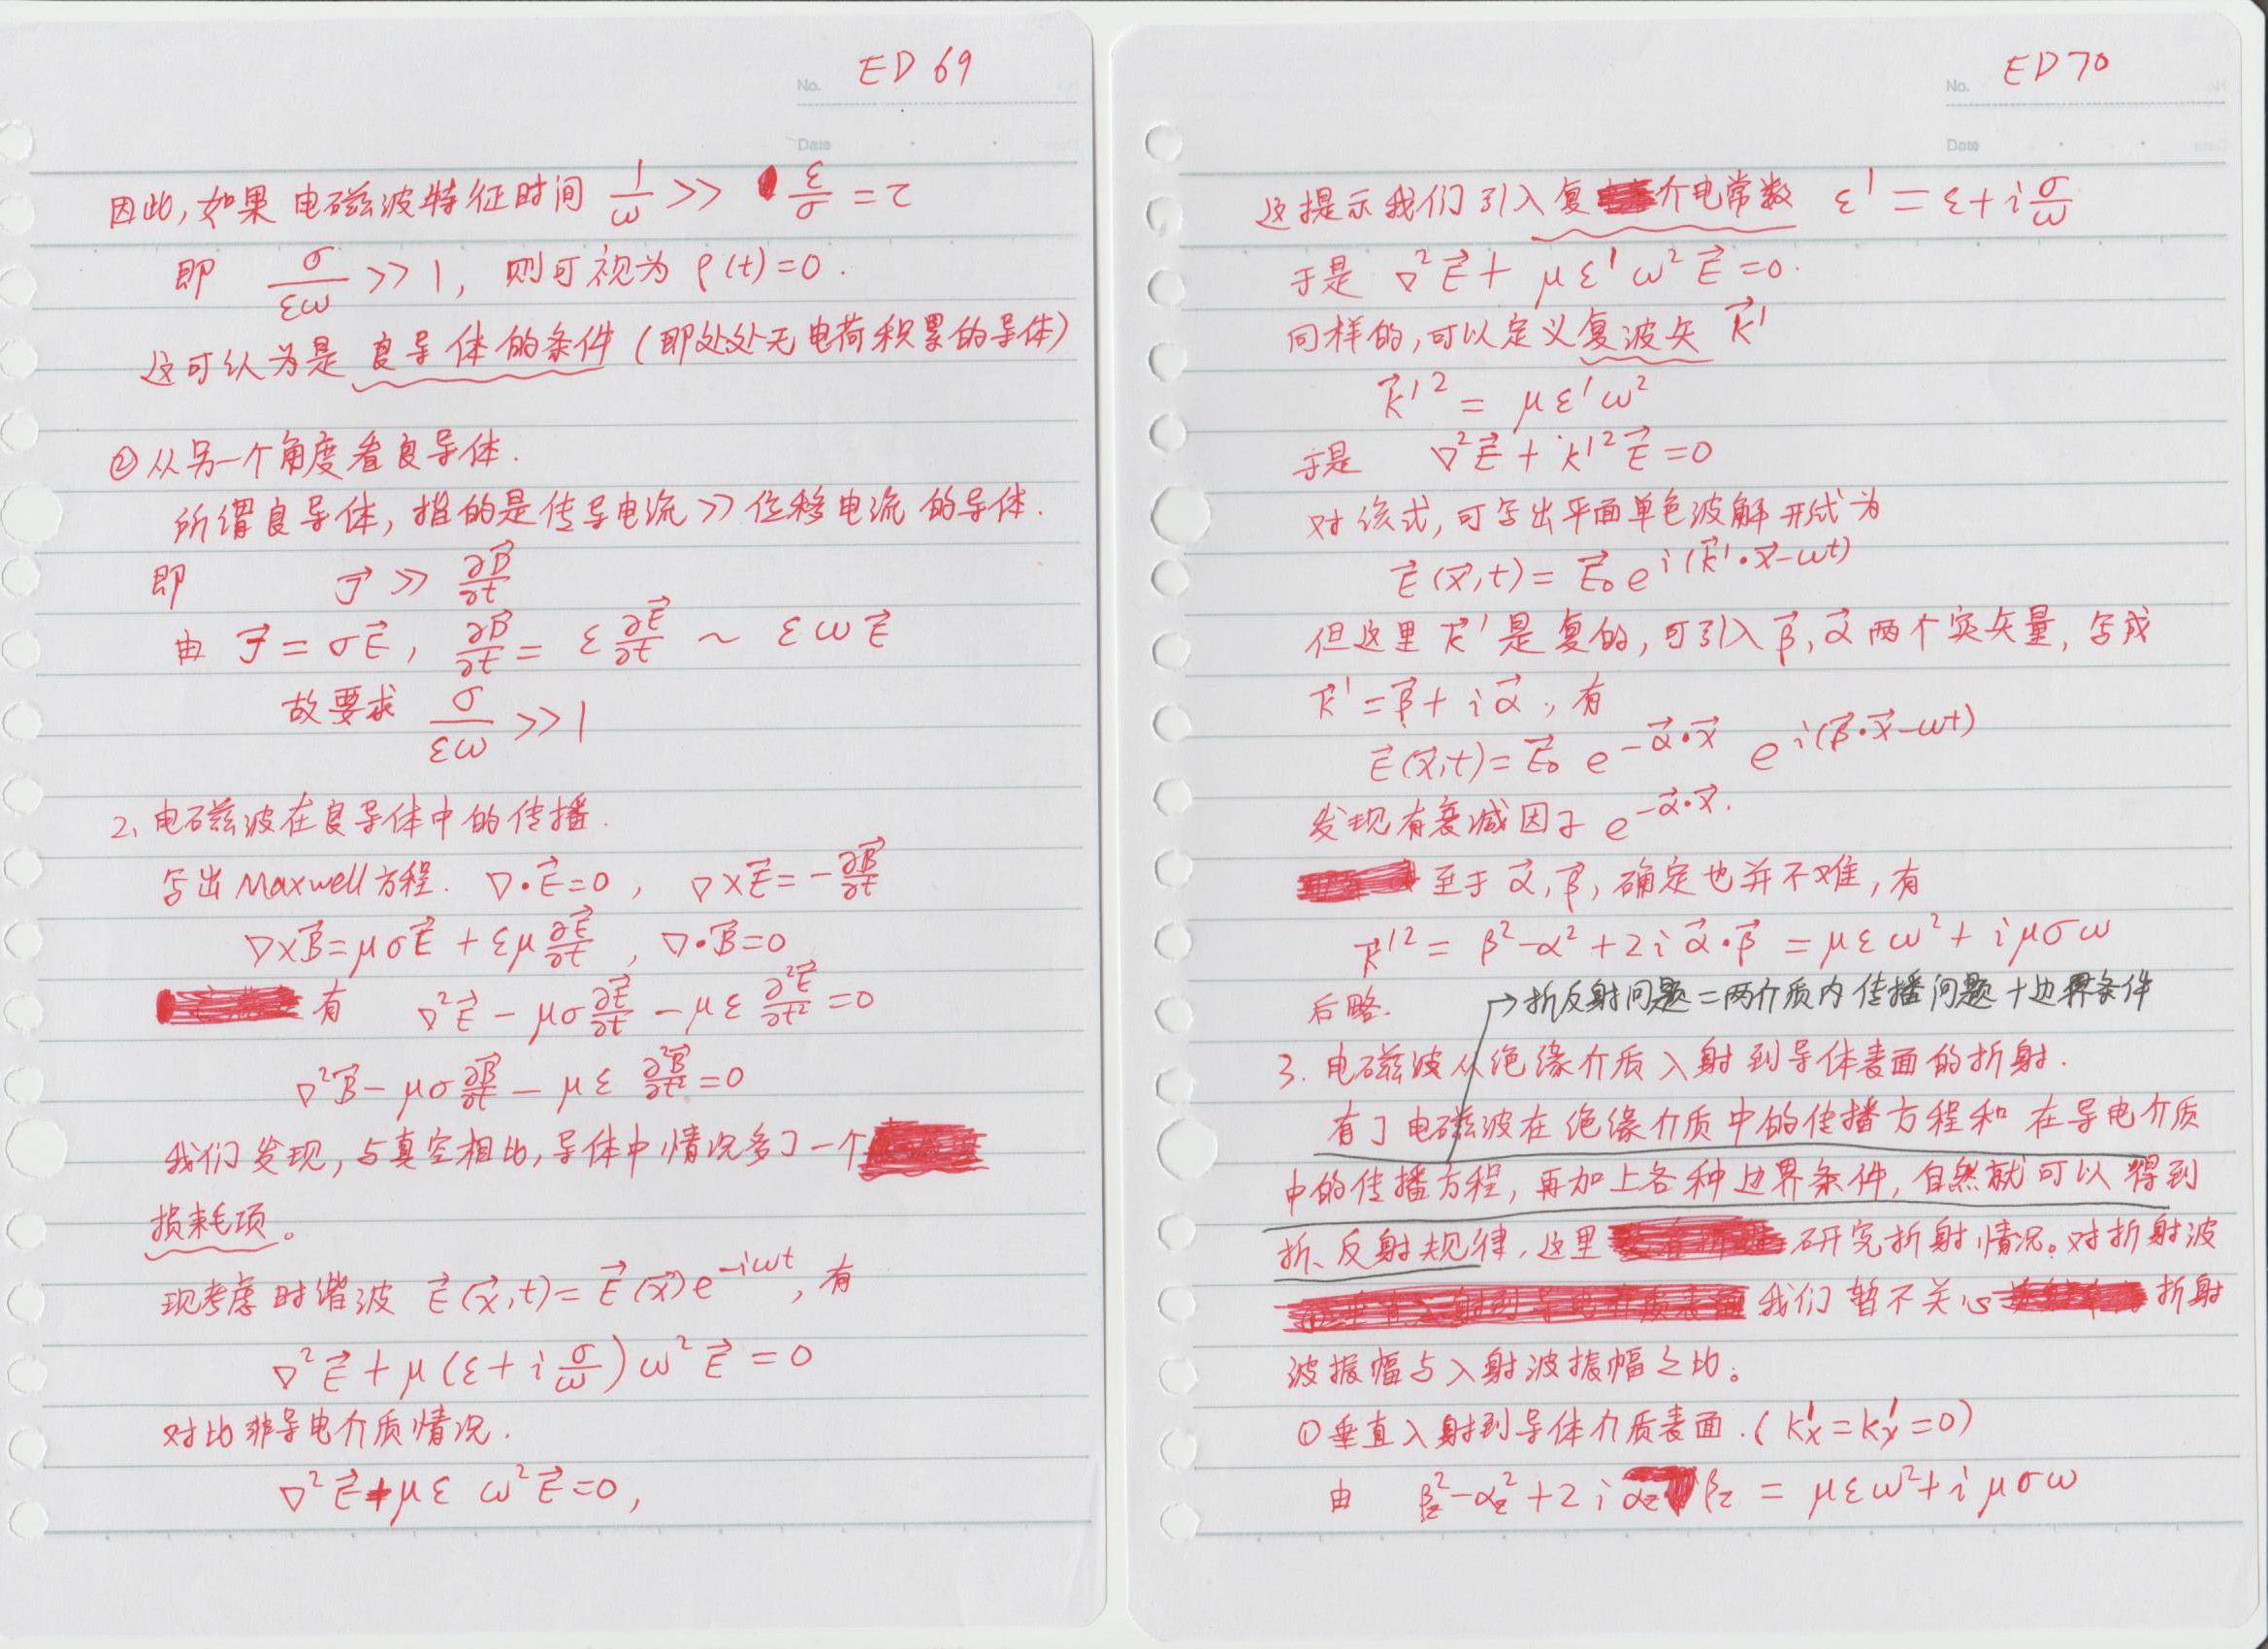 No. ED 69
Date
因此, 如果 电磁波特征时间 1/ω >> ε/σ = τ
即 σ/εω >> 1, 则可视为 ρ(t)=0.
这可认为是 良导体的条件 (即处处无电荷积累的导体)
② 从另一个角度看良导体.
所谓良导体, 指的是传导电流 >> 位移电流 的导体.
即 J⃗ >> ∂D⃗/∂t
由 J⃗ = σE⃗, ∂D⃗/∂t = ε ∂E⃗/∂t ~ εωE⃗
故要求 σ/εω >> 1
2. 电磁波在良导体中的传播.
写出Maxwell方程. ∇·E⃗=0, ∇×E⃗=-∂B⃗/∂t
∇×B⃗=μσE⃗ + εμ ∂E⃗/∂t, ∇·B⃗=0
有 ∇²E⃗ - μσ ∂E⃗/∂t - με ∂²E⃗/∂t² = 0
∇²B⃗ - μσ ∂B⃗/∂t - με ∂²B⃗/∂t² = 0
我们发现, 与真空相比, 导体中情况多了一个
损耗项。
现考虑时谐波 E⃗(x⃗,t) = E⃗(x⃗)e^{-iωt}, 有
∇²E⃗ + μ(ε + i σ/ω)ω²E⃗ = 0
对比非导电介质情况.
∇²E⃗ + με ω²E⃗=0,
No. ED 70
Date
这提示我们引入复介电常数 ε' = ε + i σ/ω
于是 ∇²E⃗ + με'ω²E⃗=0.
同样的, 可以定义复波矢 k⃗'
k⃗'² = με'ω²
于是 ∇²E⃗ + k'²E⃗=0
对该式, 可写出平面单色波解形式为
E⃗(x⃗,t) = E⃗₀ e^{i(k⃗'·x⃗-ωt)}
但这里 k⃗' 是复的, 可引入 β⃗, α⃗ 两个实矢量, 写成
k⃗' = β⃗ + iα⃗, 有
E⃗(x⃗,t) = E⃗₀ e^{-α⃗·x⃗} e^{i(β⃗·x⃗-ωt)}
发现有衰减因子 e^{-α⃗·x⃗}.
至于 α⃗, β⃗, 确定也并不难, 有
k⃗'² = β²-α²+2iα⃗·β⃗ = μεω²+iμσω
后略. →折反射问题=两介质内传播问题+边界条件
3. 电磁波从绝缘介质入射到导体表面的折射.
有了电磁波在绝缘介质中的传播方程和 在导电介质
中的传播方程, 再加上各种边界条件, 自然就可以得到
折、反射规律, 这里 研究折射情况。对折射波
我们暂不关心 折射
波振幅与入射波振幅之比。
① 垂直入射到导体介质表面. (k'x=k'y=0)
由 βz²-αz²+2iαzβz = μεω²+iμσω